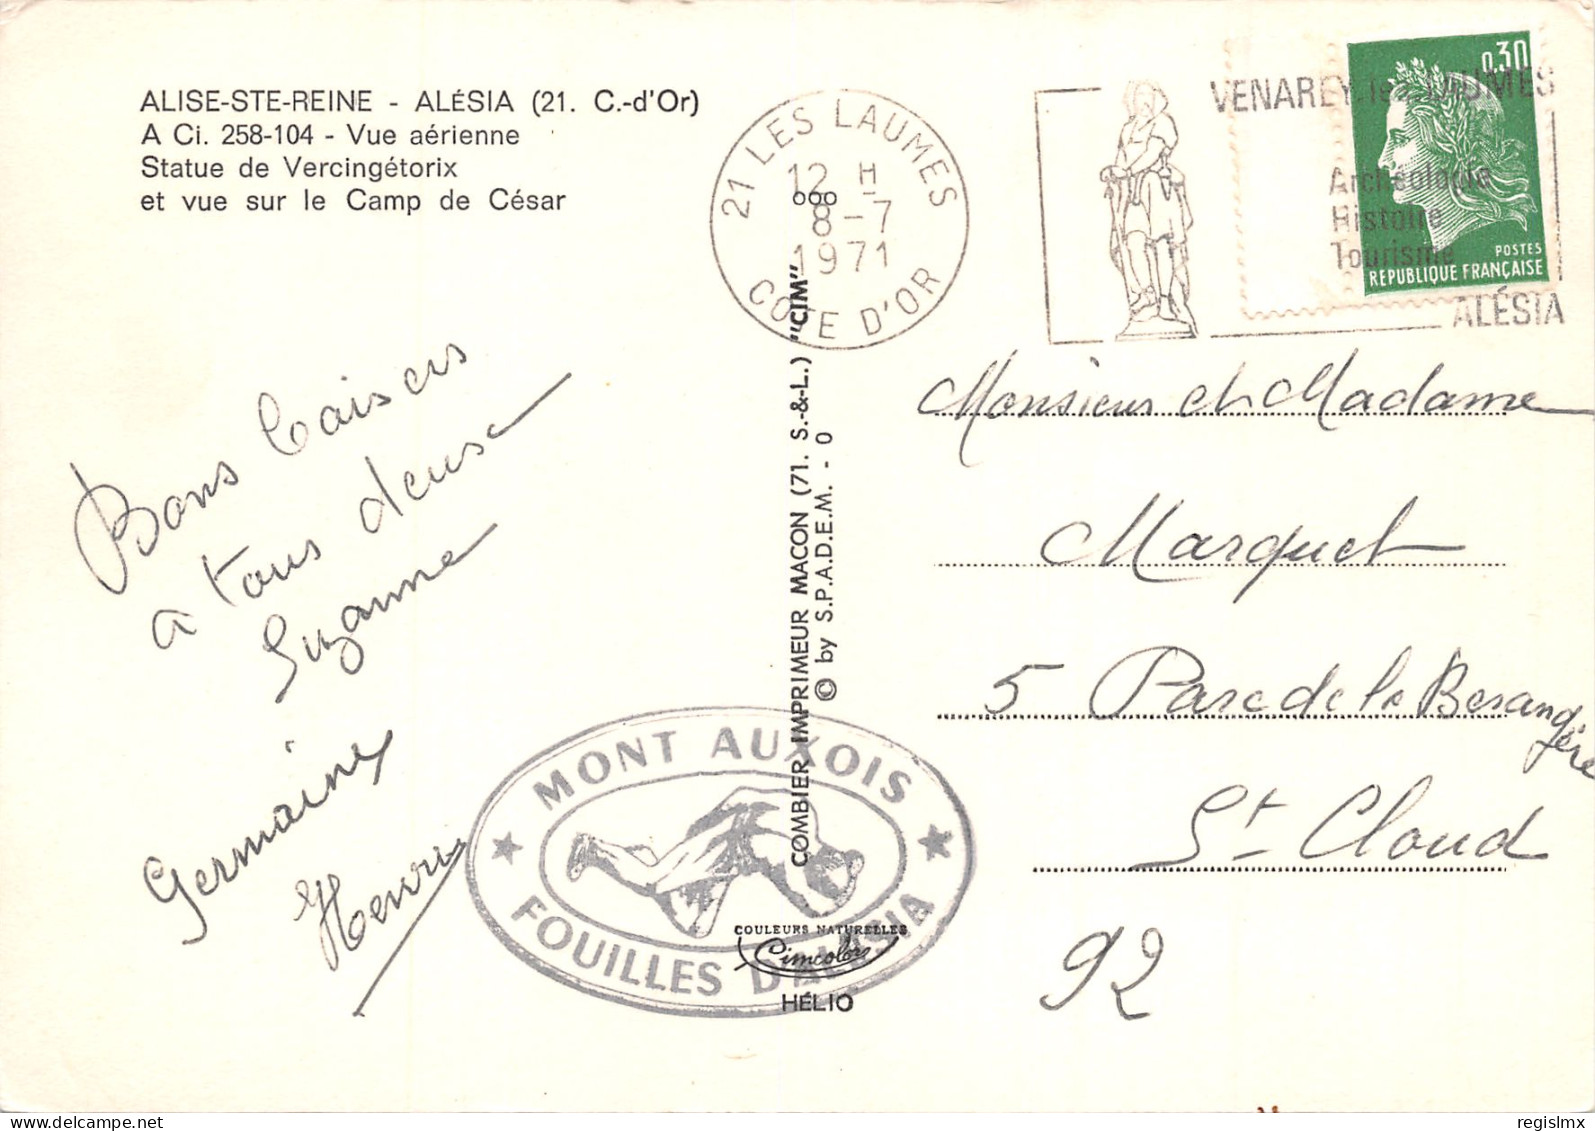 ALISE-STE-REINE - ALÉSIA (21. C.-d'Or)
A Ci. 258-104 - Vue aérienne
Statue de Vercingétorix
et vue sur le Camp de César
21 LES LAUMES
12 H
8-7
1971
COTE D'OR
VENAREY-les-LAUMES
Archéologie
Histoire
Tourisme
ALÉSIA
0,30
POSTES
REPUBLIQUE FRANÇAISE
Bons baisers
a tous deux
Suzanne
Germaine
Henri
COMBIER IMPRIMEUR MACON (71. S.-&-L.) "CIM"
© by S.P.A.D.E.M. - O
MONT AUXOIS
FOUILLES D'ALÉSIA
COULEURS NATURELLES
Cimcolor
HÉLIO
Monsieur et Madame
Marquet
5 Parc de la Berangère
St Cloud
92
delcampe.net
regislmx